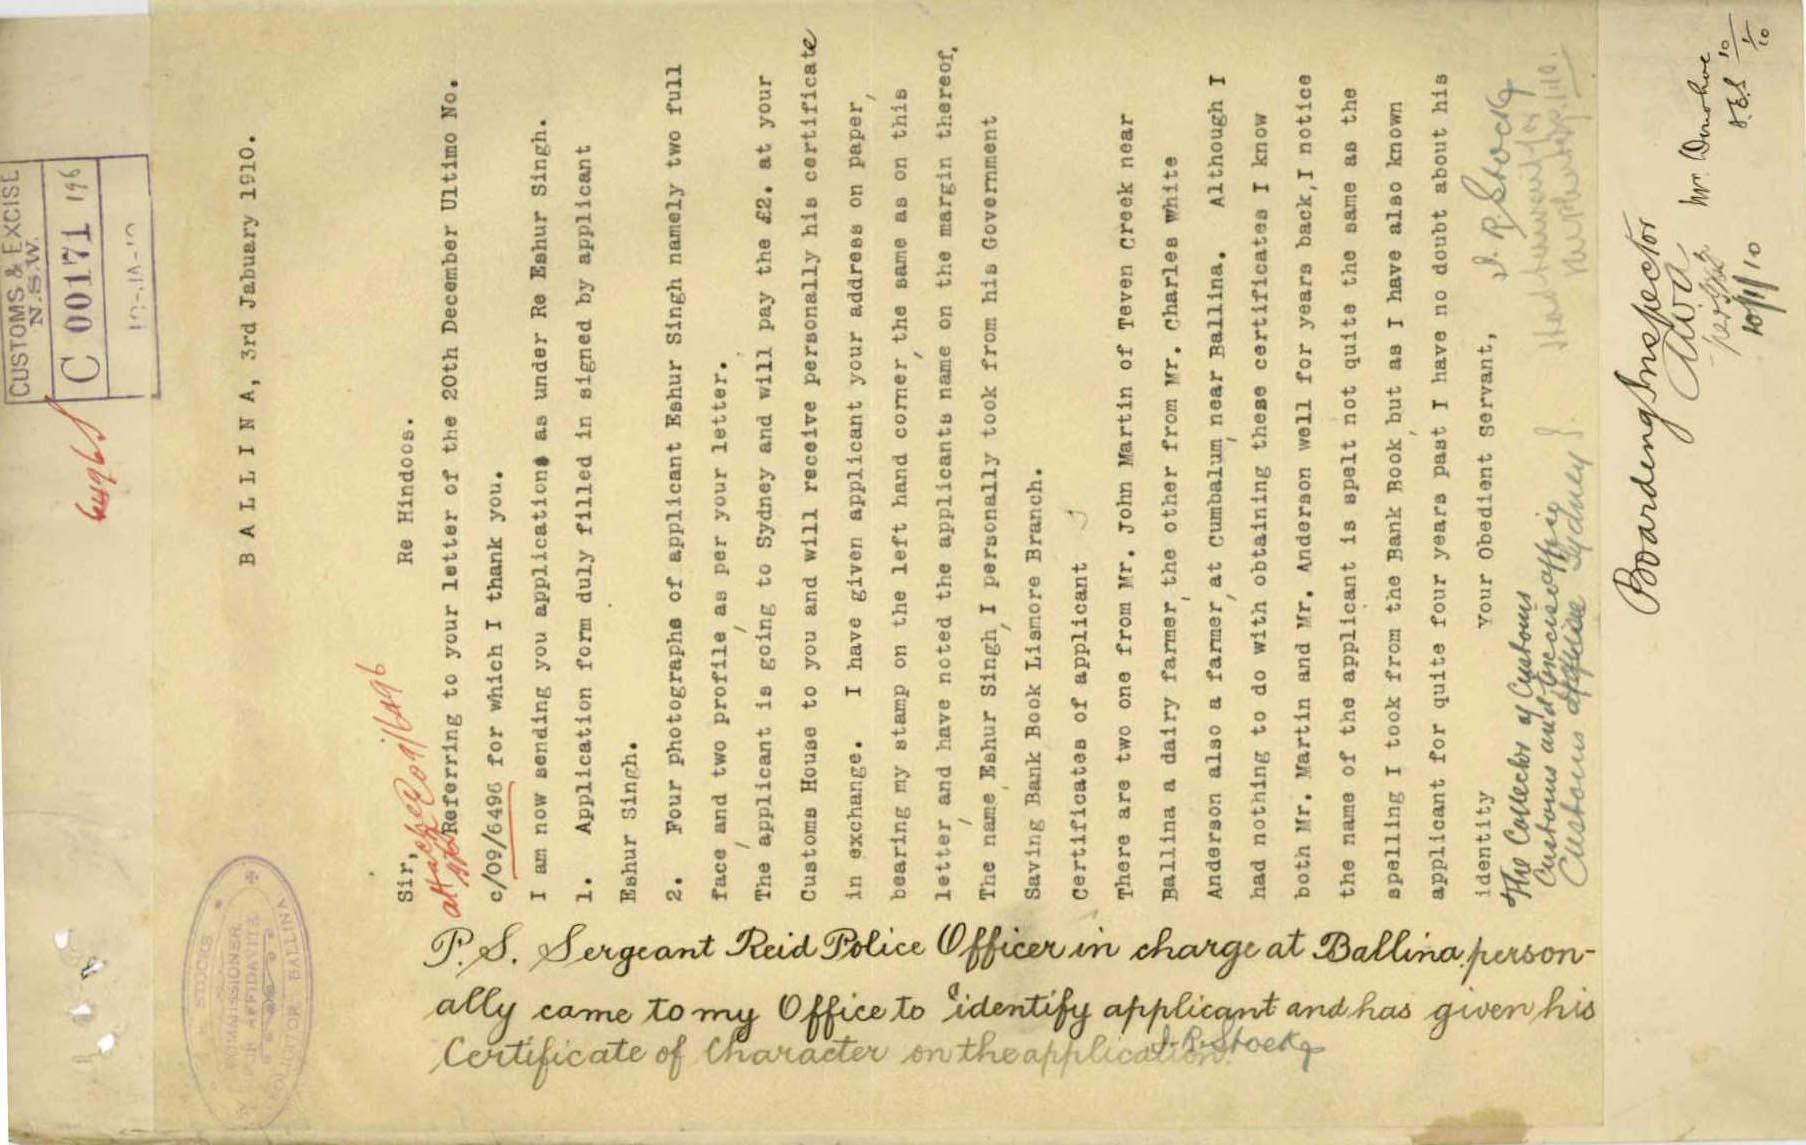 CUSTOMS & EXCISE
N.S.W.
C 00171 196
10-JA-10
64964
STOCKS
COMMISSIONER
FOR AFFIDAVITS
SOLICITOR BALLINA
B A L L I N A, 3rd Jabuary 1910.
Re Hindoos.
Sir,
attached C09/6496
Referring to your letter of the 20th December Ultimo No.
c/09/6496 for which I thank you.
I am now sending you applications as under Re Eshur Singh.
1. Application form duly filled in signed by applicant
Eshur Singh.
2. Four photographs of applicant Eshur Singh namely two full
face and two profile, as per your letter.
The applicant is going to Sydney and will pay the £2. at your
Customs House to you and will receive personally his certificate
in exchange. I have given applicant your address on paper,
bearing my stamp on the left hand corner, the same as on this
letter, and have noted the applicants name on the margin thereof.
The name, Eshur Singh, I personally took from his Government
Saving Bank Book Lismore Branch.
Certificates of applicant
There are two one from Mr. John Martin of Teven Creek near
Ballina a dairy farmer, the other from Mr. Charles White
Anderson also a farmer, at Cumbalum, near Ballina. Although I
had nothing to do with obtaining these certificates I know
both Mr. Martin and Mr. Anderson well for years back, I notice
the name of the applicant is spelt not quite the same as the
spelling I took from the Bank Book, but as I have also known
applicant for quite four years past I have no doubt about his
identity Your Obedient Servant,
J. R. Stocks
The Collector of Customs
Customs and Excise Office
Customs Sydney
P.S. Sergeant Reid Police Officer in charge at Ballina person-
ally came to my Office to identify applicant and has given his
Certificate of Character on the application. J. R. Stocks
Boarding Inspector
10/1/10
Mr. Donohoe
10/1/10